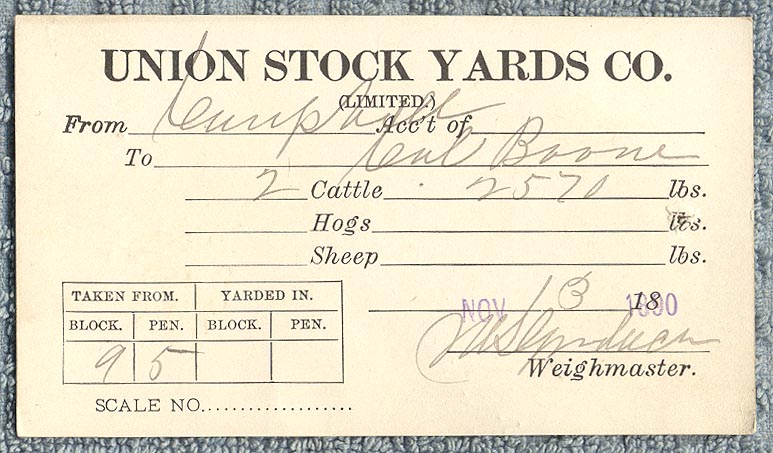 UNION STOCK YARDS CO.
(LIMITED.)
From Campbell Acc't of
To Cal Boone
2 Cattle 2570 lbs.
Hogs lbs.
Sheep lbs.
TAKEN FROM. YARDED IN.
BLOCK. PEN. BLOCK. PEN.
9 5
NOV 13 1890 18
Weighmaster.
SCALE NO...................